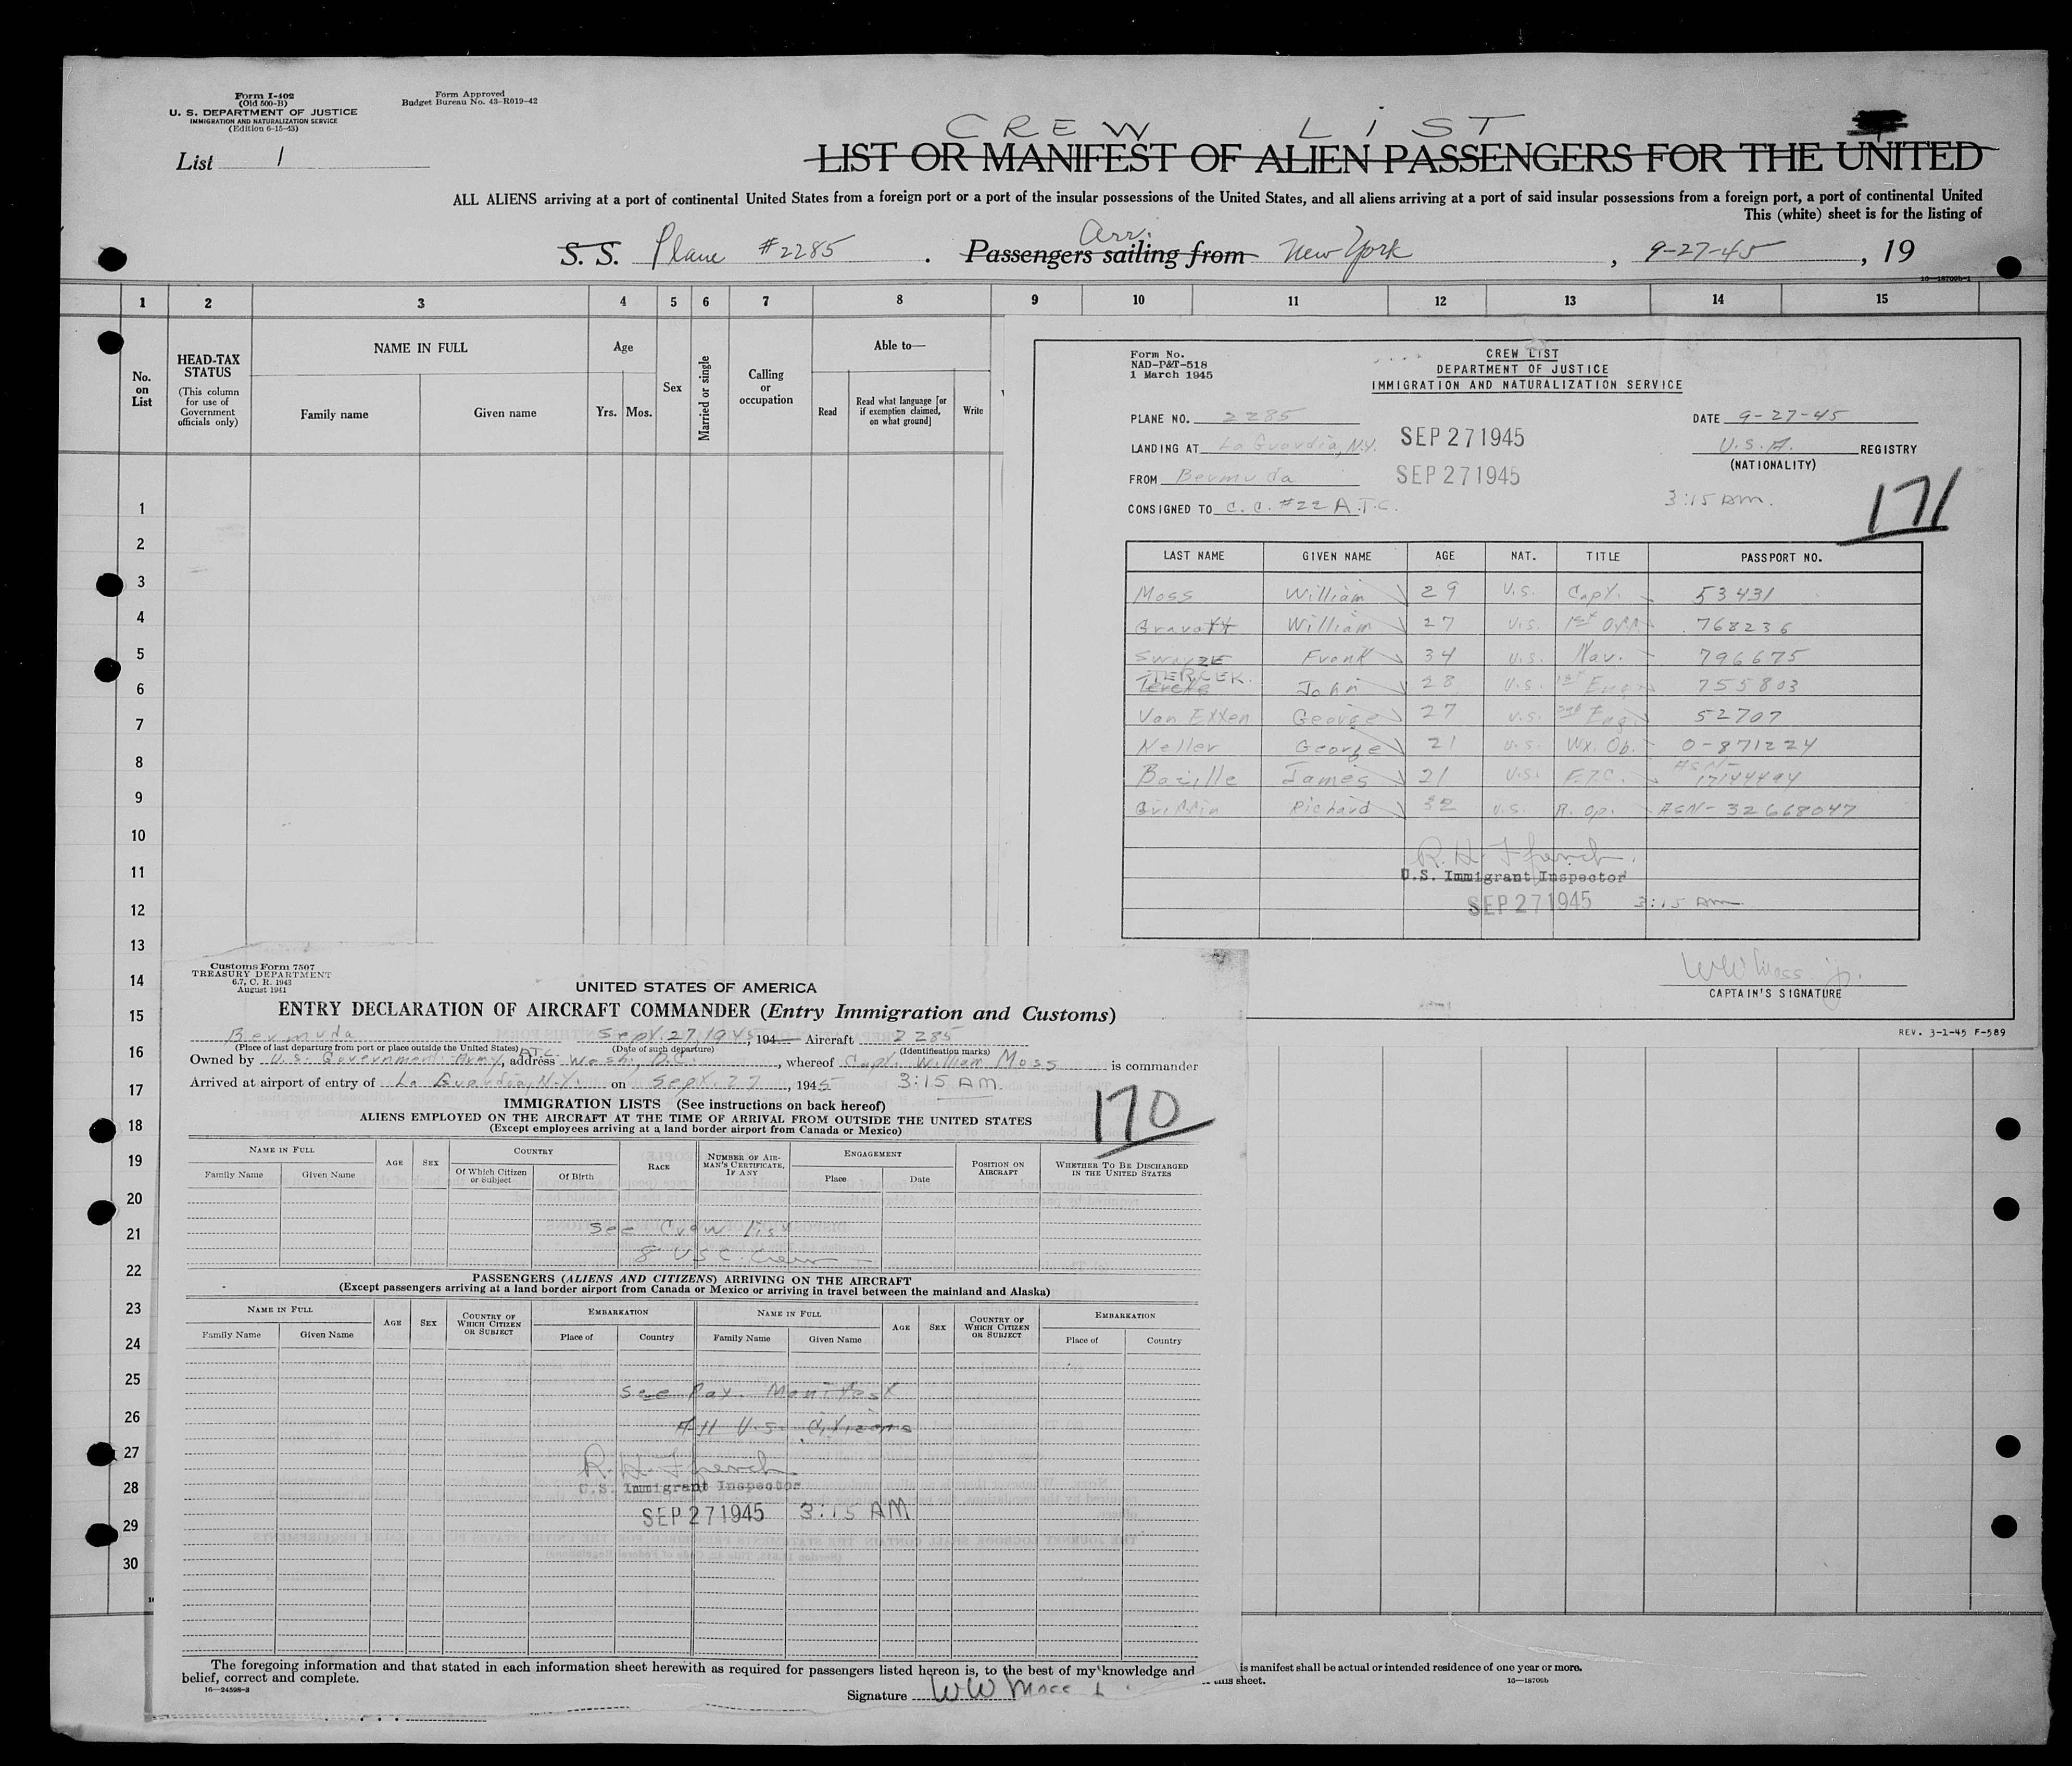 Form I-402
(Old 500-B)
U. S. DEPARTMENT OF JUSTICE
IMMIGRATION AND NATURALIZATION SERVICE
(Edition 6-15-43)
Form Approved
Budget Bureau No. 43-R019-42
List 1
CREW LIST
LIST OR MANIFEST OF ALIEN PASSENGERS FOR THE UNITED
ALL ALIENS arriving at a port of continental United States from a foreign port or a port of the insular possessions of the United States, and all aliens arriving at a port of said insular possessions from a foreign port, a port of continental United
This (white) sheet is for the listing of
Arr.
S. S. Plane #2285 . Passengers sailing from New York , 9-27-45 , 19
16—18700b-1
1 2 3 4 5 6 7 8 9 10 11 12 13 14 15
No. on List
HEAD-TAX STATUS
(This column for use of Government officials only)
NAME IN FULL
Family name Given name
Age
Yrs. Mos.
Sex
Married or single
Calling or occupation
Able to—
Read
Read what language [or if exemption claimed, on what ground]
Write
1
2
3
4
5
6
7
8
9
10
11
12
13
14
15
16
17
18
19
20
21
22
23
24
25
26
27
28
29
30
Form No.
NAD-P&T-518
1 March 1945
CREW LIST
DEPARTMENT OF JUSTICE
IMMIGRATION AND NATURALIZATION SERVICE
PLANE NO. 2285
DATE 9-27-45
LANDING AT La Guardia, N.Y.
SEP 27 1945
U.S.A. REGISTRY
(NATIONALITY)
FROM Bermuda
SEP 27 1945
CONSIGNED TO C. C. #22 A.T.C.
3:15 AM.
171
LAST NAME GIVEN NAME AGE NAT. TITLE PASSPORT NO.
Moss William 29 U.S. Capt. 53431
Gravatt William 27 U.S. 1st 768236
Swayze Frank 34 U.S. Nav. 796675
TERCEK John 28 U.S. 1st Eng. 755803
Van Etten George 27 U.S. 2nd Eng. 52707
Neller George 21 U.S. Wx. Ob. O-871224
Bazille James 21 U.S. F.T.C. ASN- 17144494
Griffin Richard 32 U.S. R. Op. ASN- 32668047
R. H. Ffrench
U.S. Immigrant Inspector
SEP 27 1945 3:15 AM
WW Moss Jr.
CAPTAIN'S SIGNATURE
REV. 3-1-45 F-589
Customs Form 7507
TREASURY DEPARTMENT
6.7, C. R. 1943
August 1941
UNITED STATES OF AMERICA
ENTRY DECLARATION OF AIRCRAFT COMMANDER (Entry Immigration and Customs)
Bermuda Sept. 27, 1945, 194 Aircraft 2285
(Place of last departure from port or place outside the United States) (Date of such departure) (Identification marks)
Owned by U.S. Government Army A.T.C., address Wash., D.C., whereof Capt. William Moss is commander
Arrived at airport of entry of La Guardia, N.Y. on Sept. 27, 1945 3:15 AM.
170
IMMIGRATION LISTS (See instructions on back hereof)
ALIENS EMPLOYED ON THE AIRCRAFT AT THE TIME OF ARRIVAL FROM OUTSIDE THE UNITED STATES
(Except employees arriving at a land border airport from Canada or Mexico)
NAME IN FULL
Family Name Given Name
AGE SEX
COUNTRY
Of Which Citizen or Subject Of Birth
RACE
NUMBER OF AIRMAN'S CERTIFICATE, IF ANY
ENGAGEMENT
Place Date
POSITION ON AIRCRAFT
WHETHER TO BE DISCHARGED IN THE UNITED STATES
See Crew List
8 USC. Crew
PASSENGERS (ALIENS AND CITIZENS) ARRIVING ON THE AIRCRAFT
(Except passengers arriving at a land border airport from Canada or Mexico or arriving in travel between the mainland and Alaska)
NAME IN FULL AGE SEX COUNTRY OF WHICH CITIZEN OR SUBJECT EMBARKATION NAME IN FULL AGE SEX COUNTRY OF WHICH CITIZEN OR SUBJECT EMBARKATION
Family Name Given Name Place of Country Family Name Given Name Place of Country
See Pax. Manifest
All U.S. Citizens
R. H. Ffrench
U.S. Immigrant Inspector
SEP 27 1945 3:15 AM
The foregoing information and that stated in each information sheet herewith as required for passengers listed hereon is, to the best of my knowledge and
belief, correct and complete.
16—24598-3
Signature WW Moss
is manifest shall be actual or intended residence of one year or more.
this sheet.
16—18700b